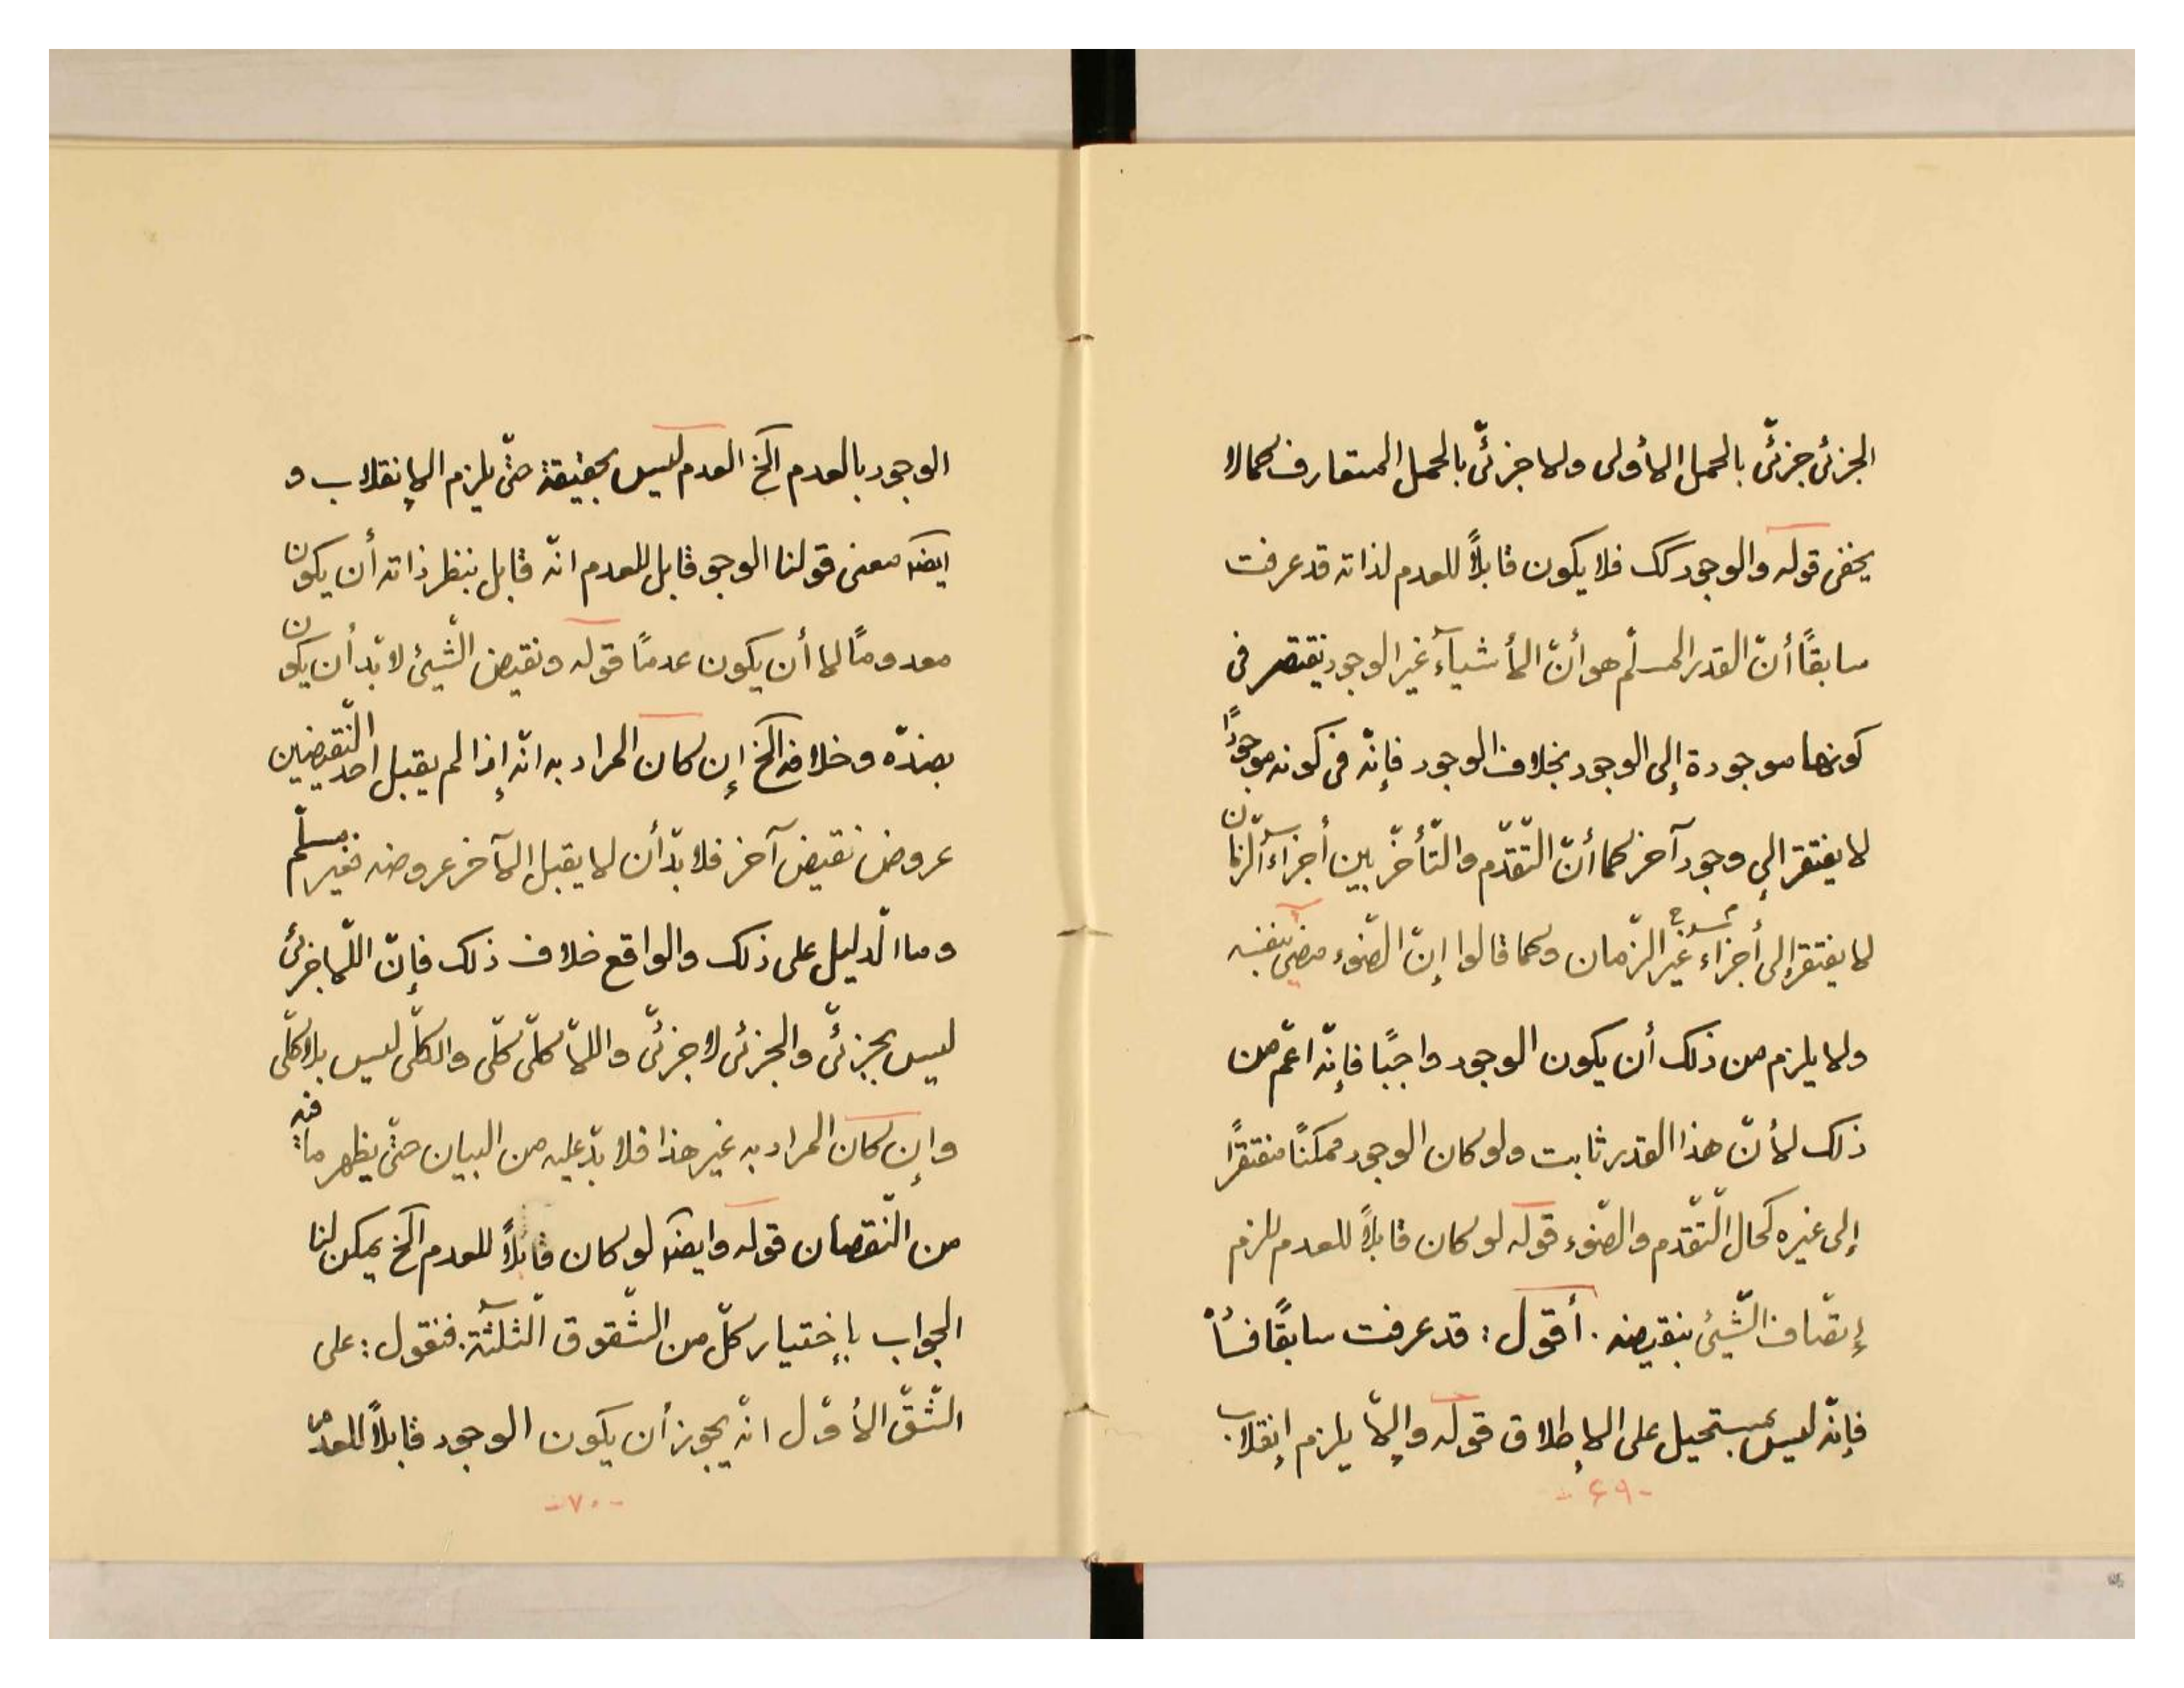 الجزئی جزئیّ بالحمل الأولی ولا جزئیّ بالحمل المتعارف کما لا
یخفی قوله والوجود کک فلا یکون قابلاً للعدم لذاته قد عرفت
سابقًا أنّ القدر المسلّم هو أنّ الأشیآء غیر الوجود یفتقر فی
کونها موجودة إلی الوجود بخلاف الوجود فإنّه فی کونه موجودًا
لا یفتقر إلی وجود آخر کما أنّ التّقدّم والتّأخّر بین أجزاء الزّمان
لا یفتقر إلی أجزاء غیر الزّمان وکما قالوا إنّ الضّوء مضیٔ بنفسه
ولا یلزم من ذلک أن یکون الوجود واجبًا فإنّه اعمّ من
ذلک لأنّ هذا القدر ثابت ولو کان الوجود ممکنًا مفتقرًا
إلی غیره کحال التّقدّم والضّوء قوله لو کان قابلاً للعدم لزم
إتّصاف الشّیئ بنقیضه . أقول : قد عرفت سابقًا فساده
فإنّه لیس بمستحیل علی الإطلاق قوله وإلّا یلزم إنقلاب
-۶۹-
الوجود بالعدم الخ العدم لیس بحقیقة حتّی یلزم الإنقلاب و
ایضًا معنی قولنا الوجود قابل للعدم انّه قابل بنظر ذاته أن یکون
معدومًا لا أن یکون عدمًا قوله ونقیض الشّیئ لا بدّ أن یکون
بضدّه وخلافه الخ إن کان المراد به انّه إذا لم یقبل احد النّقیضین
عروض نقیض آخر فلا بدّ أن لا یقبل الآخر عروضه فغیر مسلّم
وما الدّلیل علی ذلک والواقع خلاف ذلک فإنّ اللّا جزئی
لیس بجزئیّ والجزئی لا جزئیّ واللّا کلّی کلّی والکلّی لیس بلا کلّی
وإن کان المراد به غیر هذا فلا بدّ علیه من البیان حتّی یظهر ما فیه
من النّقصان قوله وایضًا لو کان قابلاً للعدم الخ یمکن لنا
الجواب بإختیار کلّ من الشّقوق الثّلثة . فنقول : علی
الشّقّ الأوّل انّه یجوز أن یکون الوجود قابلاً للعدم
-۷۰-